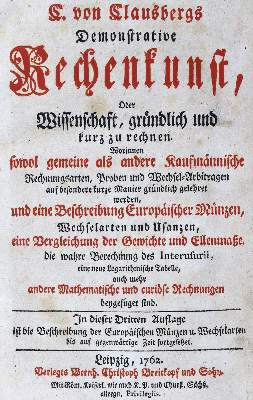 C. von Clausbergs
Demonstrative
Rechenkunst,
Oder
Wissenschaft, gründlich und
kurz zu rechnen.
Worinnen
sowol gemeine als andere Kaufmännische
Rechnungsarten, Proben und Wechsel-Arbitragen
auf besondere kurze Manier gründlich gelehret
werden,
und eine Beschreibung Europäischer Münzen,
Wechselarten und Usanzen,
eine Vergleichung der Gewichte und Ellenmaße,
die wahre Berechnung des Interusurii,
eine neue Logarithmische Tabelle,
auch mehr
andere Mathematische und curiöse Rechnungen
beygefüget sind.
In dieser Dritten Auflage
ist die Beschreibung der Europäischen Münzen u. Wechselarten
bis auf gegenwärtige Zeit fortgesetzet.
Leipzig, 1762.
Verlegts Bernh. Christoph Breitkopf und Sohn.
Mit Röm. Kaiserl. wie auch K. P. und Churf. Sächs.
allergn. Privilegio.